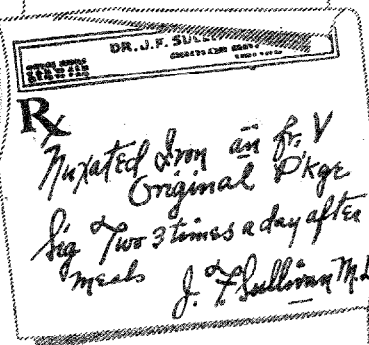 DR. J. F. SULL
Rx
Nuxated Iron āā gr. V
Original P'kge
Sig Two 3 times a day after
meals
J. F. Sullivan M.D